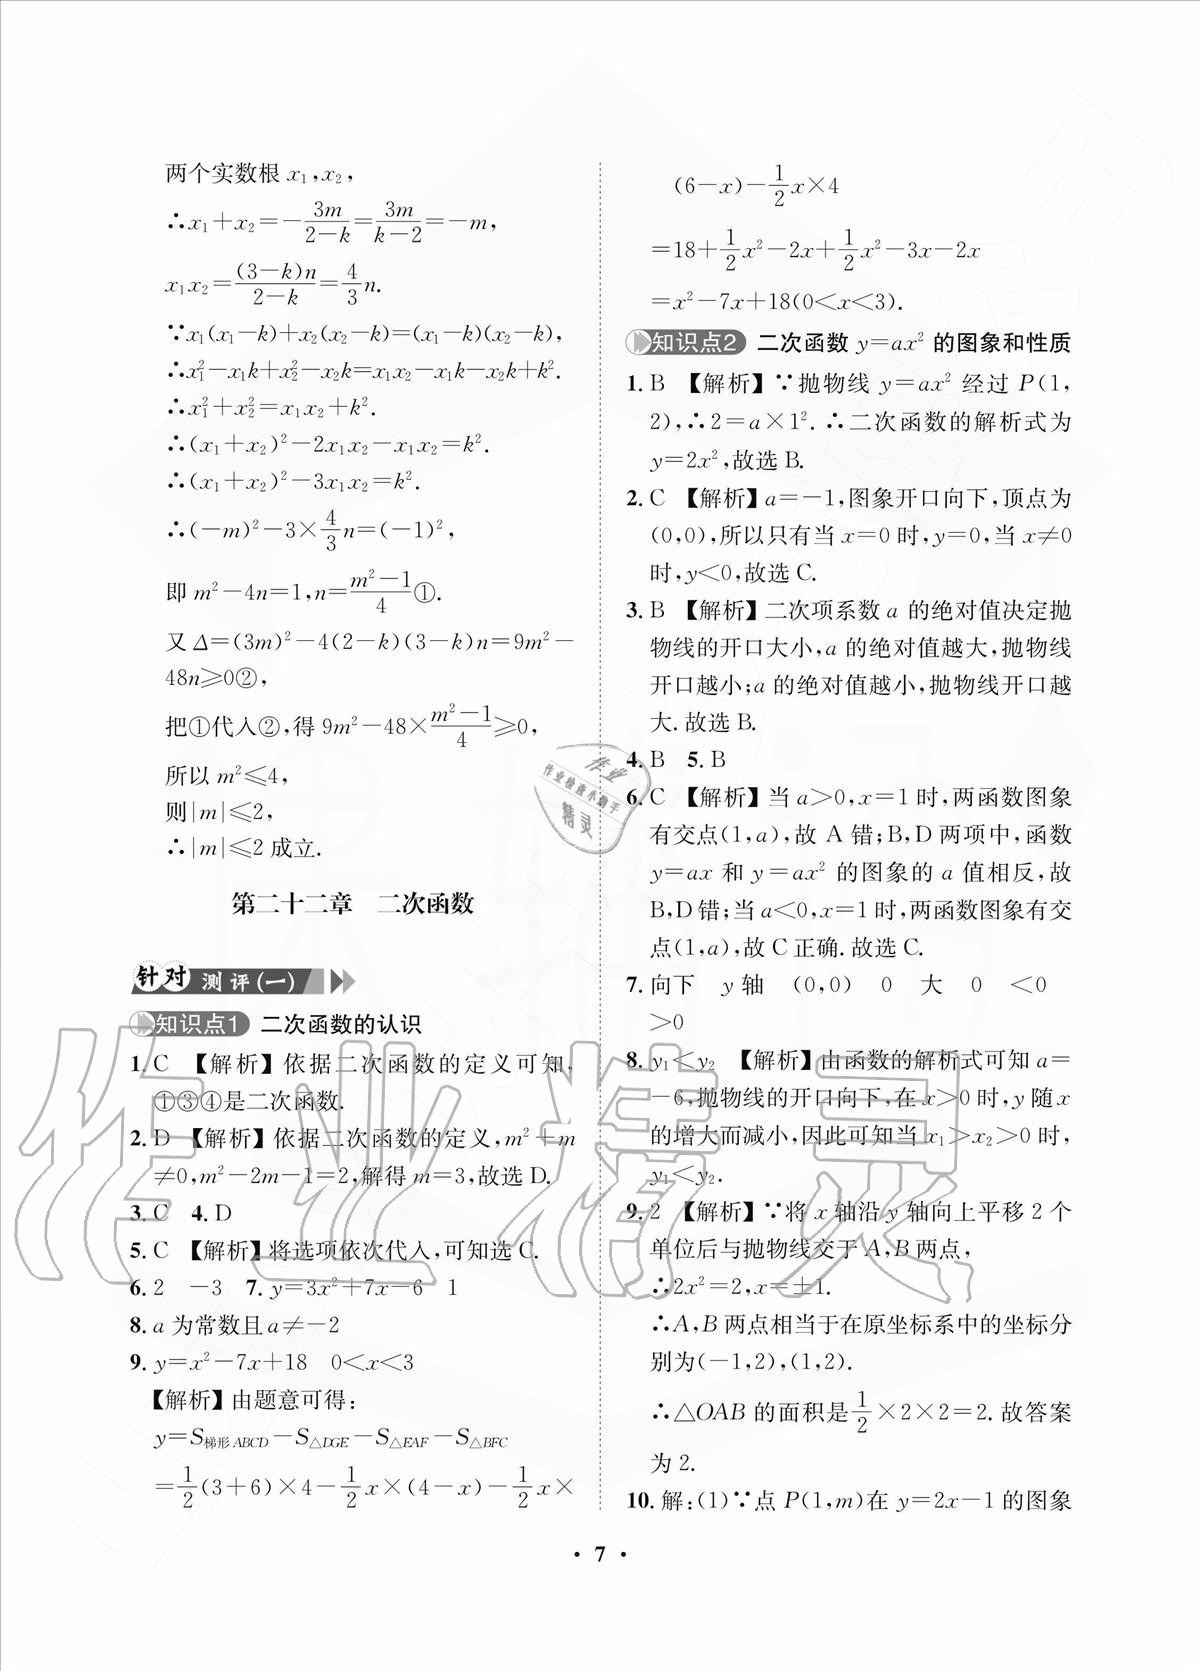 两个实数根 x₁,x₂,
∴x₁+x₂=-3m/(2-k)=3m/(k-2)=-m,
x₁x₂=(3-k)n/(2-k)=4/3 n.
∵x₁(x₁-k)+x₂(x₂-k)=(x₁-k)(x₂-k),
∴x₁²-x₁k+x₂²-x₂k=x₁x₂-x₁k-x₂k+k².
∴x₁²+x₂²=x₁x₂+k².
∴(x₁+x₂)²-2x₁x₂-x₁x₂=k².
∴(x₁+x₂)²-3x₁x₂=k².
∴(-m)²-3×4/3 n=(-1)²,
即 m²-4n=1,n=(m²-1)/4①.
又 Δ=(3m)²-4(2-k)(3-k)n=9m²-
48n≥0②,
把①代入②,得 9m²-48×(m²-1)/4≥0,
所以 m²≤4,
则|m|≤2,
∴|m|≤2 成立.
第二十二章 二次函数
针对 测评(一)
知识点1 二次函数的认识
1. C 【解析】依据二次函数的定义可知,
①③④是二次函数.
2. D 【解析】依据二次函数的定义,m²+m
≠0,m²-2m-1=2,解得 m=3,故选 D.
3. C 4. D
5. C 【解析】将选项依次代入,可知选 C.
6. 2 -3 7. y=3x²+7x-6 1
8. a 为常数且 a≠-2
9. y=x²-7x+18 0<x<3
【解析】由题意可得:
y=S梯形ABCD-S△DGE-S△EAF-S△BFC
=1/2(3+6)×4-1/2 x×(4-x)-1/2 x×
(6-x)-1/2 x×4
=18+1/2 x²-2x+1/2 x²-3x-2x
=x²-7x+18(0<x<3).
知识点2 二次函数 y=ax² 的图象和性质
1. B 【解析】∵抛物线 y=ax² 经过 P(1,
2),∴2=a×1². ∴二次函数的解析式为
y=2x²,故选 B.
2. C 【解析】a=-1,图象开口向下,顶点为
(0,0),所以只有当 x=0 时,y=0,当 x≠0
时,y<0,故选 C.
3. B 【解析】二次项系数 a 的绝对值决定抛
物线的开口大小,a 的绝对值越大,抛物线
开口越小;a 的绝对值越小,抛物线开口越
大.故选 B.
4. B 5. B
6. C 【解析】当 a>0,x=1 时,两函数图象
有交点(1,a),故 A 错;B,D 两项中,函数
y=ax 和 y=ax² 的图象的 a 值相反,故
B,D 错;当 a<0,x=1 时,两函数图象有交
点(1,a),故 C 正确.故选 C.
7. 向下 y 轴 (0,0) 0 大 0 <0
>0
8. y₁<y₂ 【解析】由函数的解析式可知 a=
-6,抛物线的开口向下,在 x>0 时,y 随 x
的增大而减小,因此可知当 x₁>x₂>0 时,
y₁<y₂.
9. 2 【解析】∵将 x 轴沿 y 轴向上平移 2 个
单位后与抛物线交于 A,B 两点,
∴2x²=2,x=±1.
∴A,B 两点相当于在原坐标系中的坐标分
别为(-1,2),(1,2).
∴△OAB 的面积是1/2×2×2=2.故答案
为 2.
10. 解:(1)∵点 P(1,m)在 y=2x-1 的图象
· 7 ·
作业
作业检查小助手
精灵
作业精灵